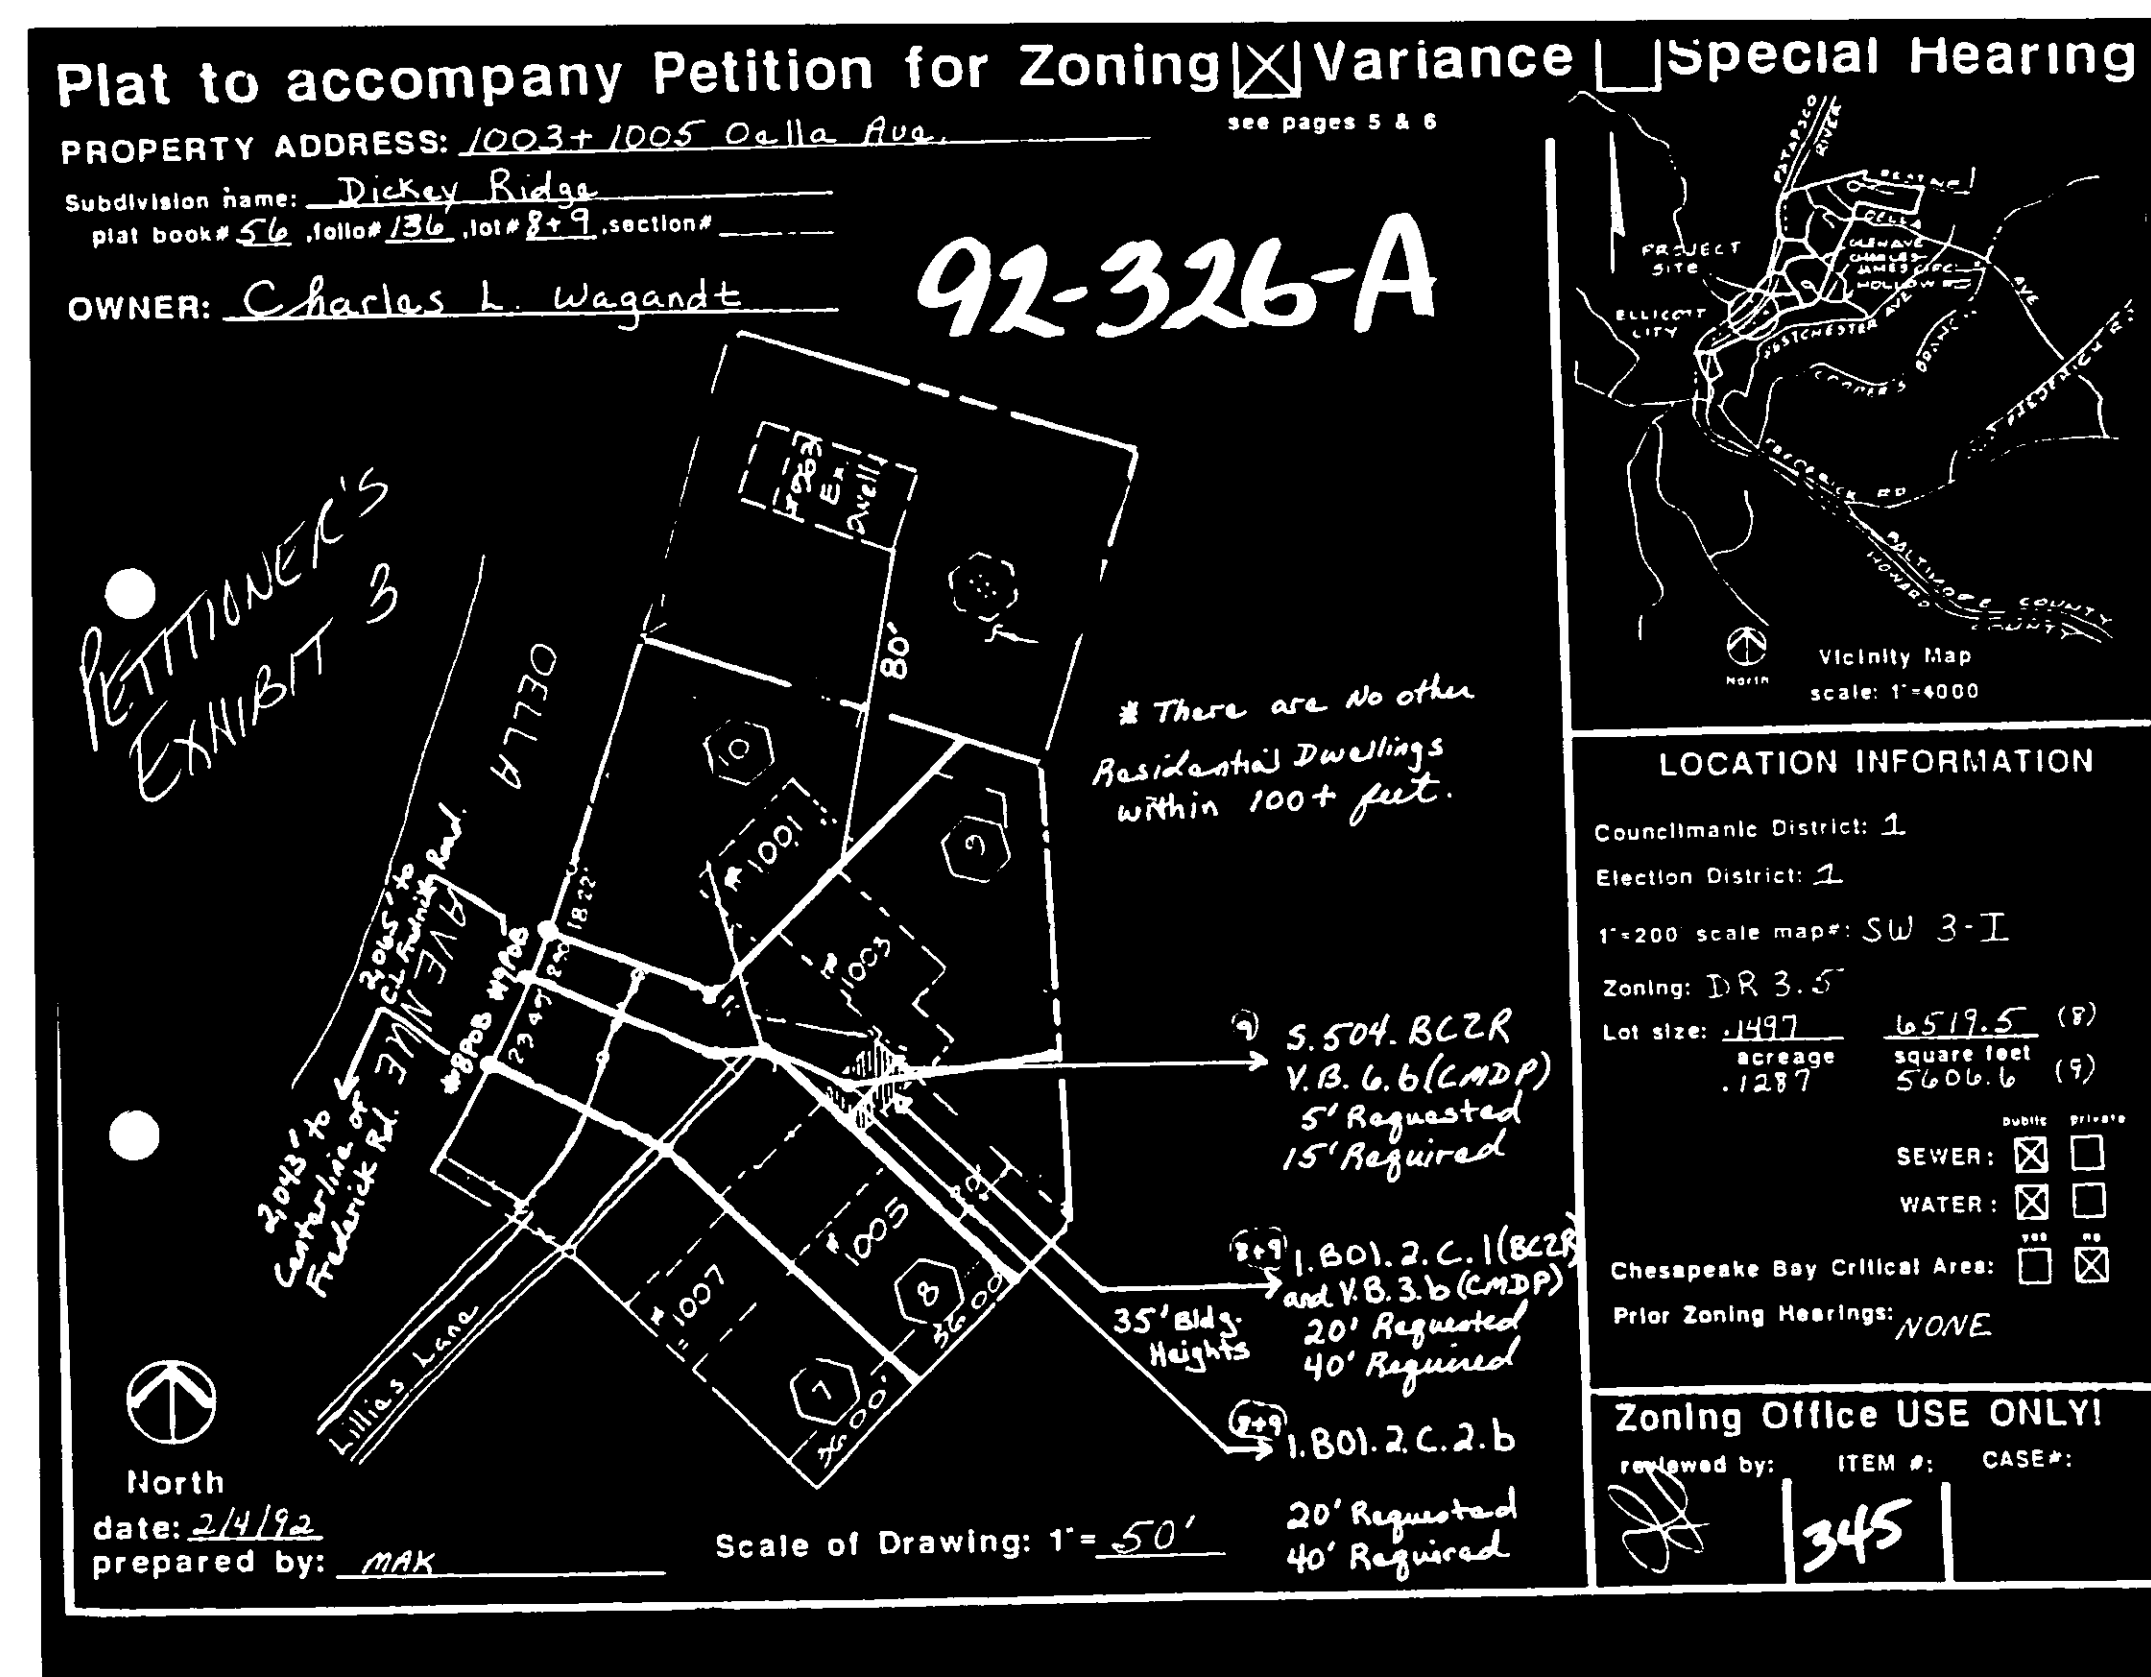 Plat to accompany Petition for Zoning Variance Special Hearing
see pages 5 & 6
PROPERTY ADDRESS: 1003+1005 Oella Ave.
Subdivision name: Dickey Ridge
plat book# 56, folio# 136, lot# 8+9, section#
OWNER: Charles L. Wagandt
92-326-A
PETITIONER'S
EXHIBIT 3
Ex.
Dwell
80'
OELLA
AVENUE
10
9
8
7
# 1001
# 1003
# 1005
# 1007
18.22'
23.45'
36.00'
36.00'
#9POB
#8POB
2,065' to
C.L. Fredrick Road.
2,043' to
Centerline of
Frederick Rd.
Lillies Lane
* There are No other
Residential Dwellings
within 100+ feet.
9
S.504. BCZR
V.B.6.b (CMDP)
5' Requested
15' Required
8+9
1.B01.2.C.1 (BCZR)
and V.B.3.b (CMDP)
20' Requested
40' Required
35' Bldg.
Heights
8+9
1.B01.2.C.2.b
20' Requested
40' Required
North
date: 2/4/92
prepared by: MAK
Scale of Drawing: 1"= 50'
PATAPSCO
RIVER
OELLA
AVE
GLENAVE
CHARLES
JAMES CIRCLE
HOLLOW RD
PROJECT
SITE
ELLICOTT
CITY
WESTCHESTER AVE
COOPER'S BRANCH
FREDERICK RD
FREDERICK RD
BALTIMORE COUNTY
HOWARD COUNTY
North
Vicinity Map
scale: 1"=4000
LOCATION INFORMATION
Councilmanic District: 1
Election District: 1
1"=200' scale map#: SW 3-I
Zoning: DR 3.5
Lot size: .1497 6519.5 (8)
acreage square feet
.1287 5606.6 (9)
public private
SEWER:
WATER:
yes no
Chesapeake Bay Critical Area:
Prior Zoning Hearings: NONE
Zoning Office USE ONLY!
reviewed by: ITEM #: CASE#:
345